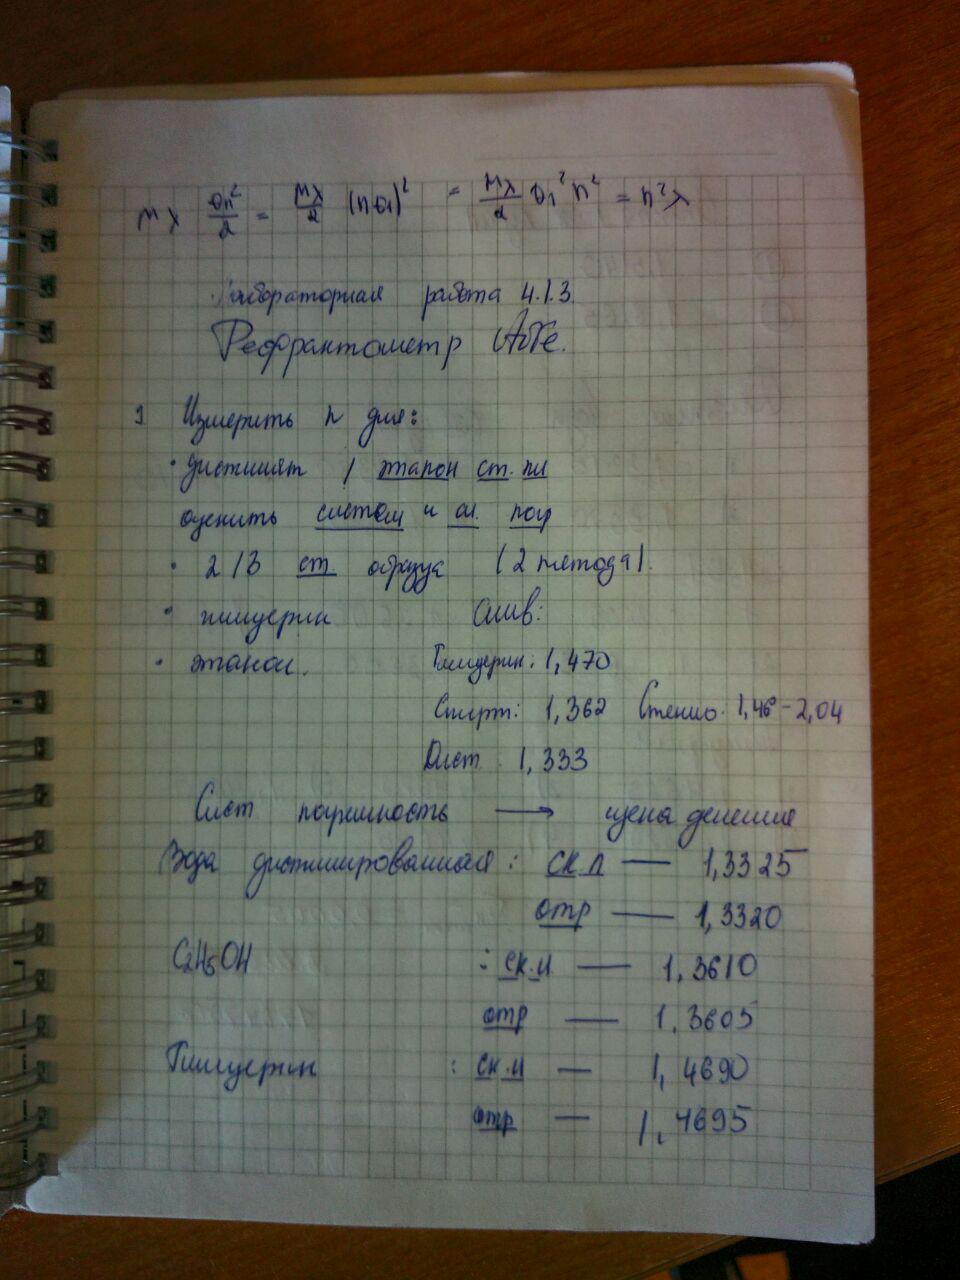 Mλ θn²/2 = Mλ/2 (nθ₁)² = Mλ/2 θ₁² n² = n²λ
Лабораторная работа 4.1.3.
Рефрактометр Аббе.
1 Измерить n для:
• дистиллят / эталон ст. пл
оценить систем и сл. погр
• 2/3 ст. образца (2 метода).
• глицерин Слив:
• этанол. Глицерин: 1,470
Спирт: 1,362 Стекло. 1,46-2,04
Дист. 1,333
Сист погрешность → цена деления
Вода дистиллированная: ск.л — 1,3325
отр — 1,3320
C₂H₅OH : ск.л — 1.3610
отр — 1.3605
Глицерин : ск.л — 1,4690
отр — 1,4695